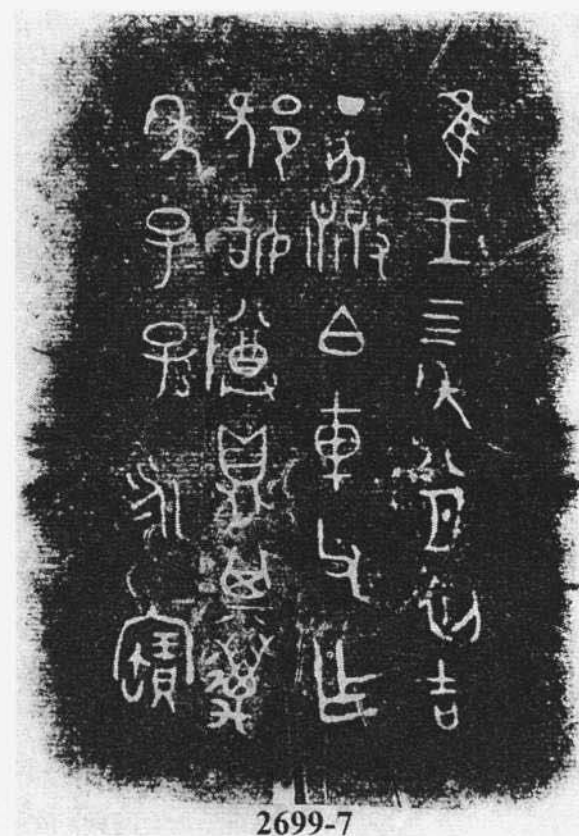 隹王四年八月初吉
丁亥散白車父乍
邪姞尊鼎其萬年
子子孫永寶
2699-7